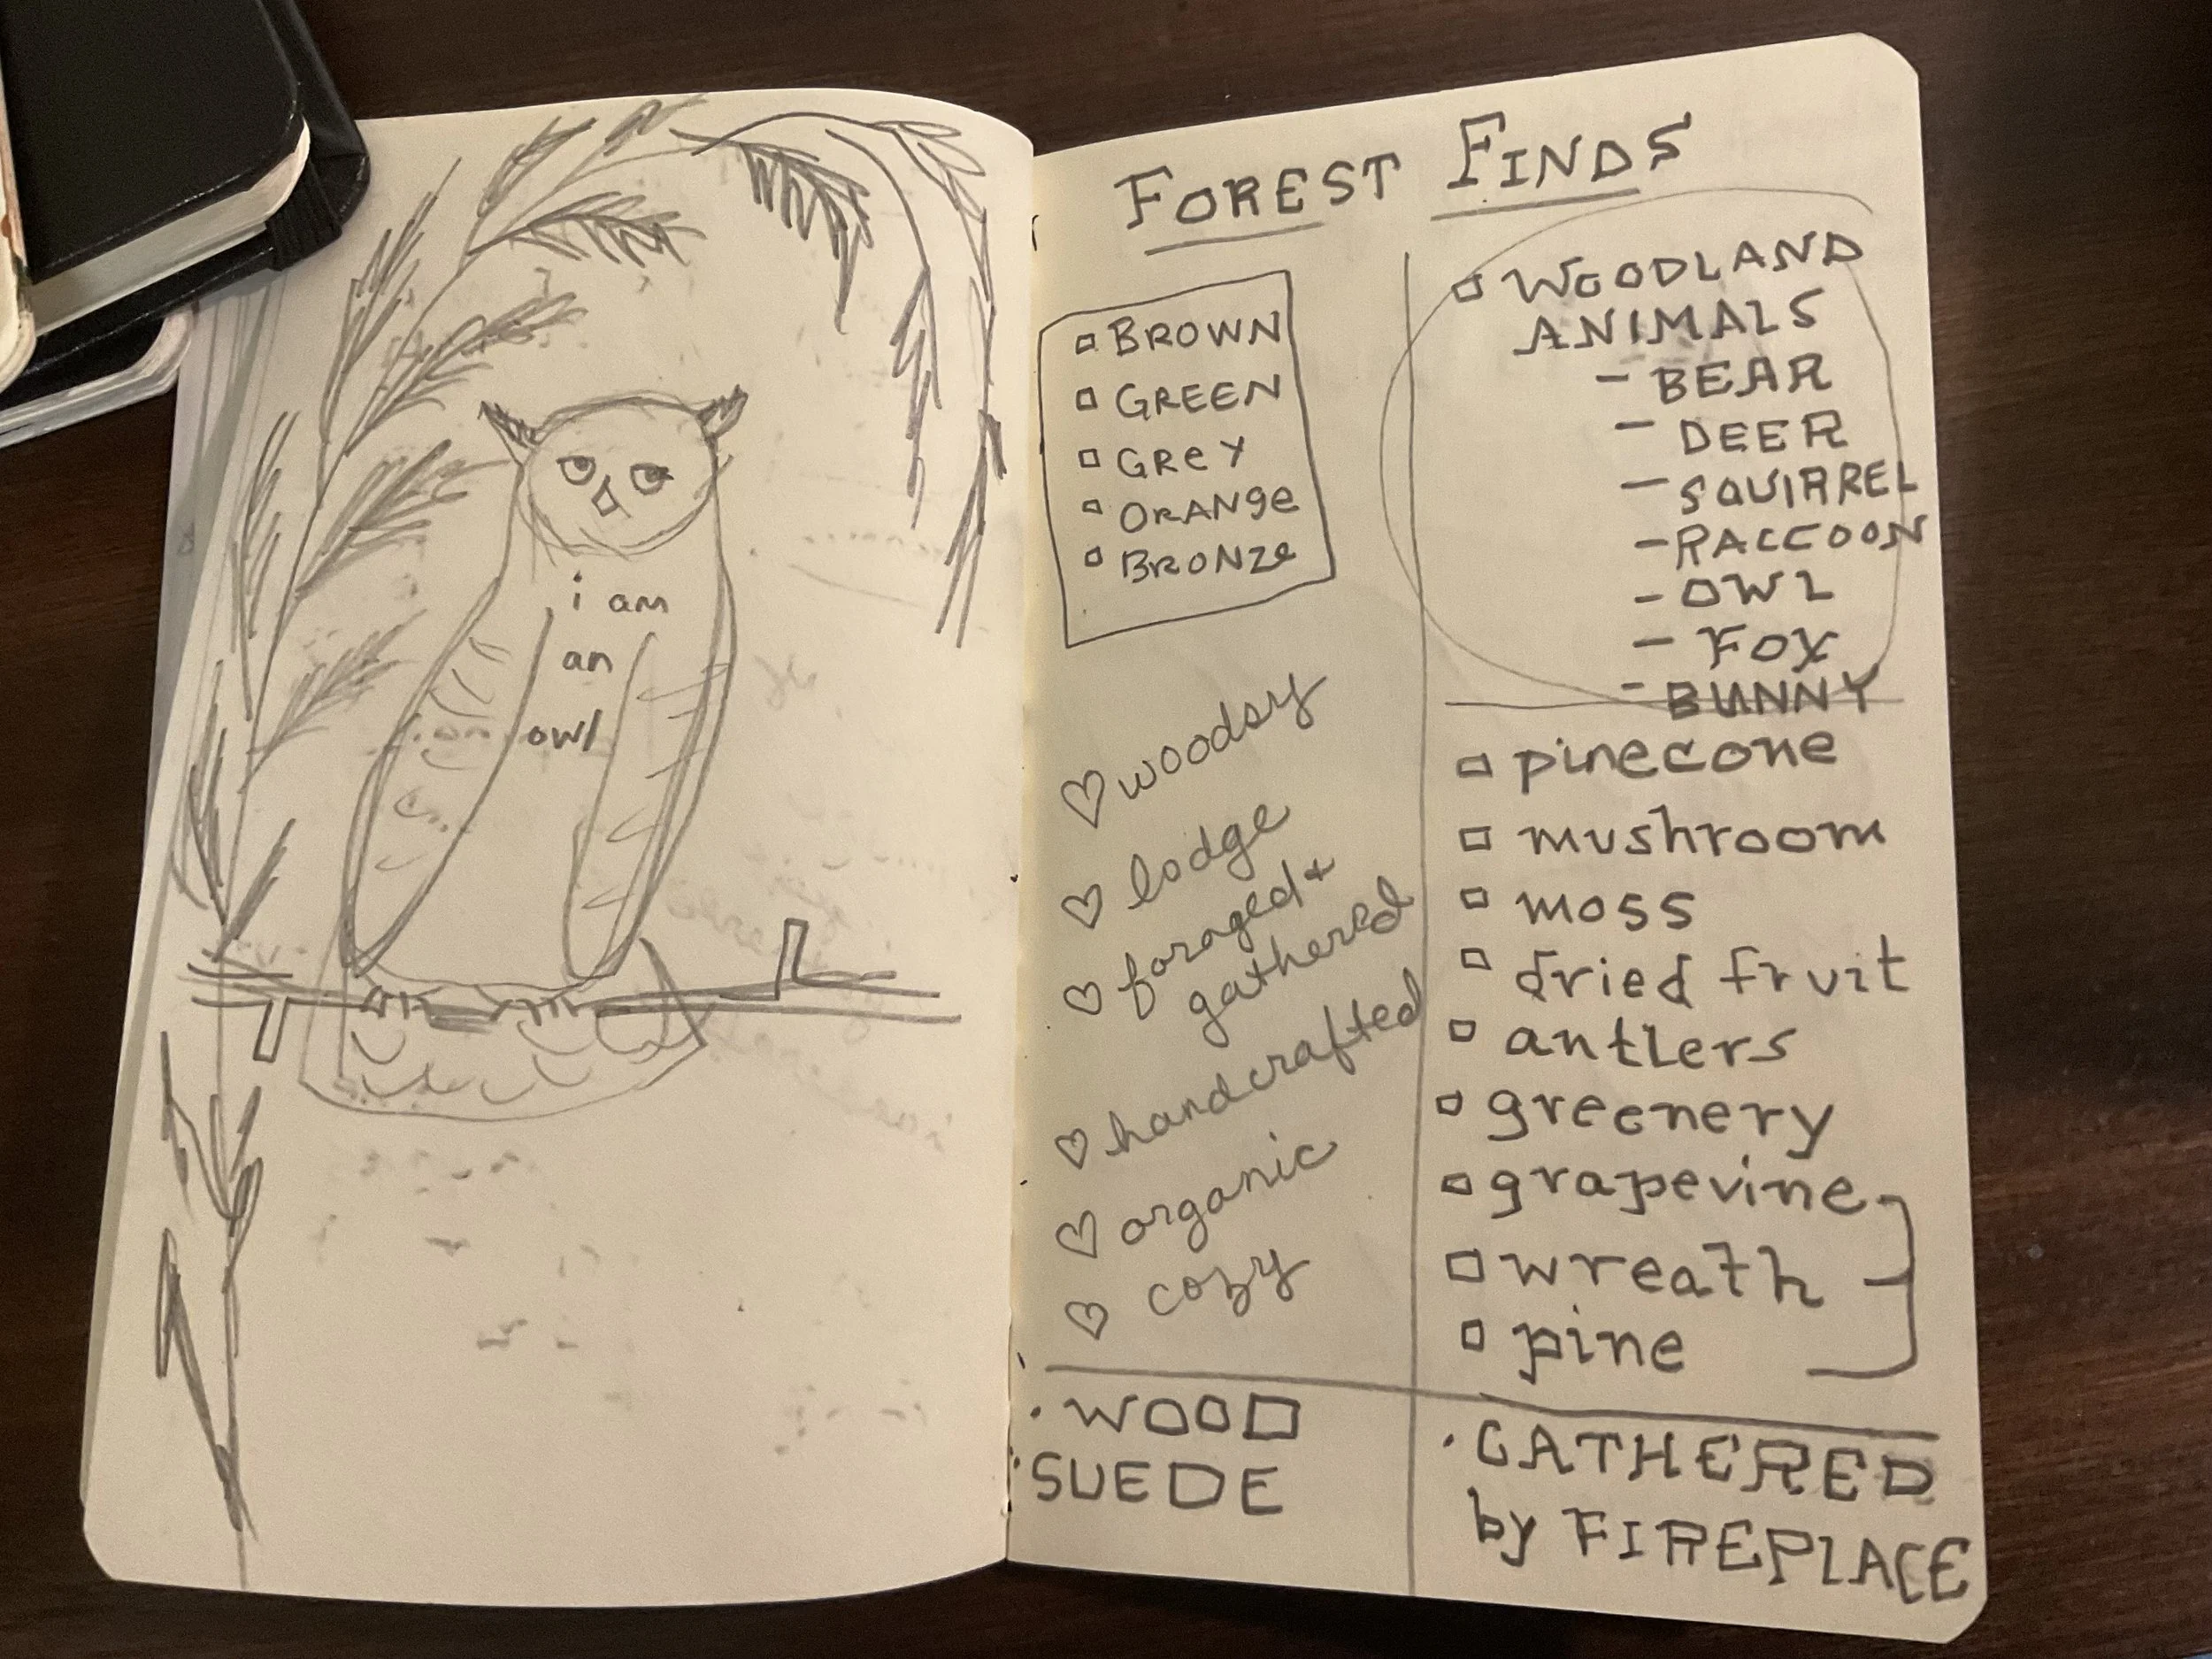 i am
an
owl
FOREST FINDS
BROWN
GREEN
GREY
ORANGE
BRONZE
woodsy
lodge
foraged +
gathered
handcrafted
organic
cozy
WOODLAND
ANIMALS
- BEAR
- DEER
- SQUIRREL
- RACCOON
- OWL
- FOX
- BUNNY
pinecone
mushroom
moss
dried fruit
antlers
greenery
grapevine
wreath
pine
· WOOD
· SUEDE
· GATHERED
by FIREPLACE